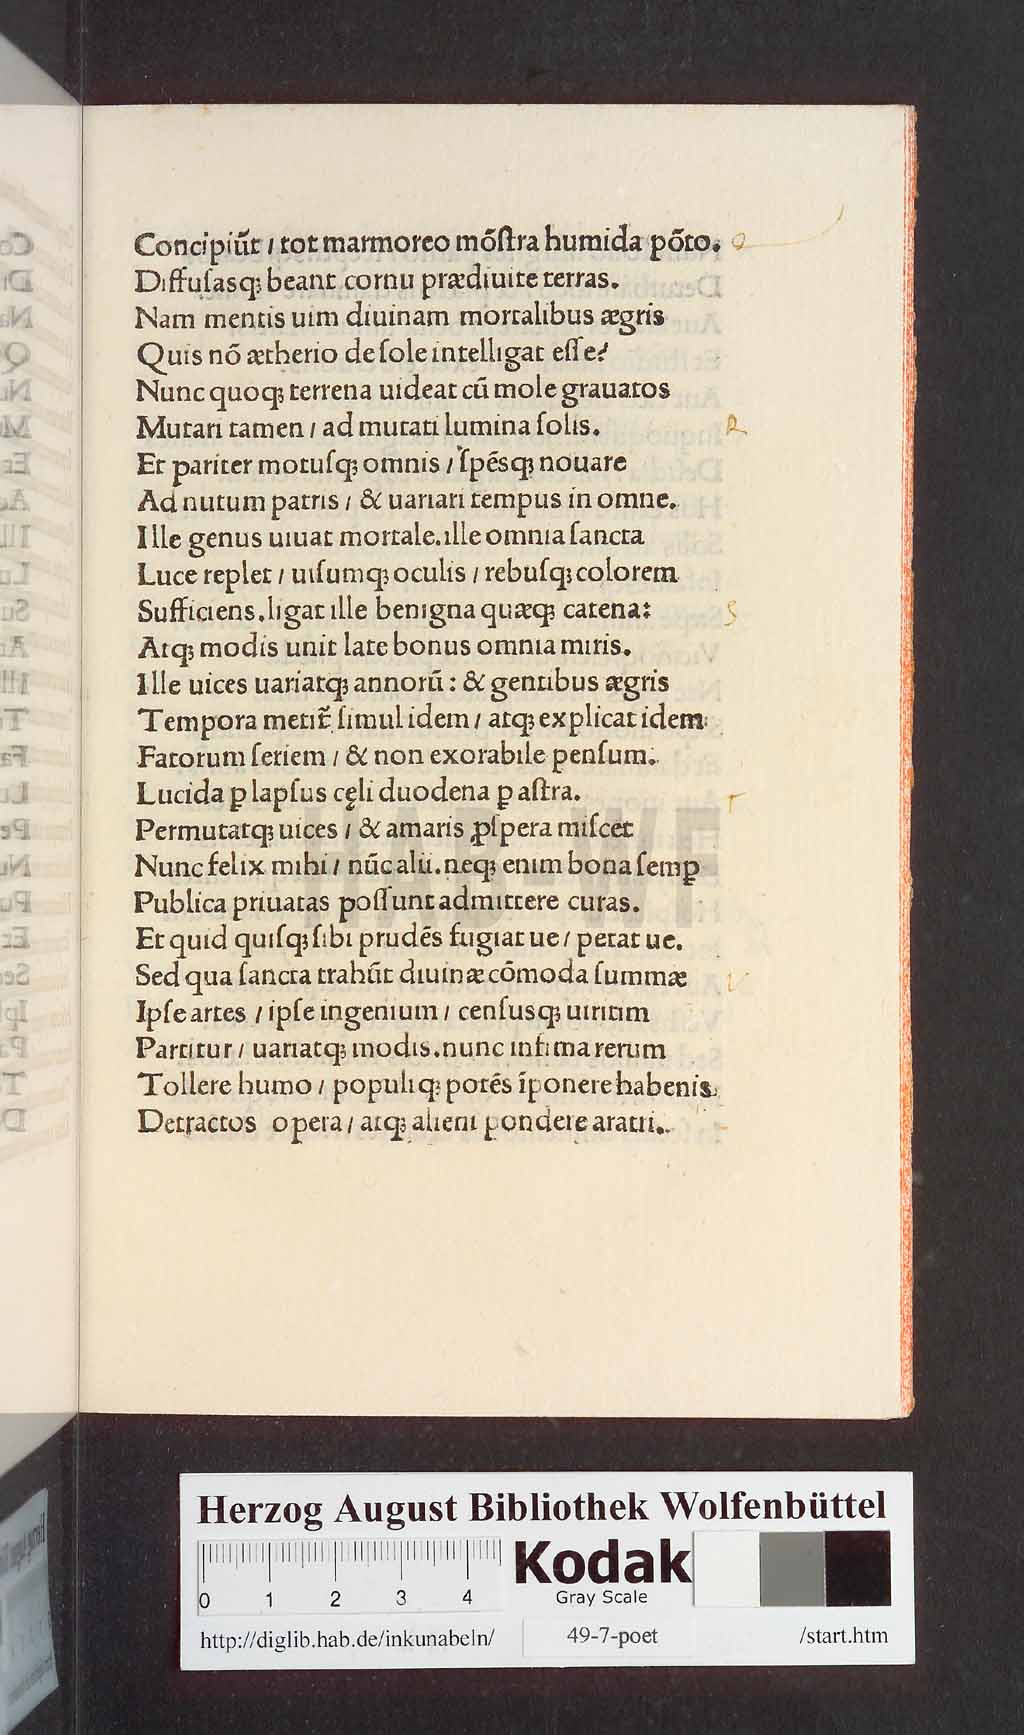 Concipiūt / tot marmoreo mōſtra humida pōto.
Diffuſasq; beant cornu præditiuite terras.
Nam mentis uim diuinam mortalibus ægris
Quis nō ætherio de ſole intelligat eſſe?
Nunc quoq; terrena uideat cū mole grauatos
Mutari tamen / ad mutati lumina ſolis.
Et pariter motuſq; omnis / ſpēsq; nouare
Ad nutum patris / & uariari tempus in omne.
Ille genus uiuat mortale. ille omnia ſancta
Luce replet / uiſumq; oculis / rebuſq; colorem
Sufficiens. ligat ille benigna quæq; catena:
Atq; modis unit late bonus omnia miris.
Ille uices uariatq; annorū: & gentibus ægris
Tempora metit̄ ſimul idem / atq; explicat idem
Fatorum ſeriem / & non exorabile penſum.
Lucida ꝑ lapſus cęli duodena ꝑ aſtra.
Permutatq; uices / & amaris ꝓſpera miſcet
Nunc felix mihi / nūc alii. neq; enim bona ſemꝑ
Publica priuatas poſſunt admittere curas.
Et quid quiſq; ſibi prudēs fugiat ue / petat ue.
Sed qua ſancta trahūt diuinæ cōmoda ſummæ
Ipſe artes / ipſe ingenium / cenſusq; uiritim
Partitur / uariatq; modis. nunc infima rerum
Tollere humo / populiq; potēs īponere habenis
Detractos opera / atq; alieni pondere aratri.
O
R
S
T
V
HAB-WF
Herzog August Bibliothek Wolfenbüttel
0 1 2 3 4
Kodak
Gray Scale
http://diglib.hab.de/inkunabeln/
49-7-poet
/start.htm